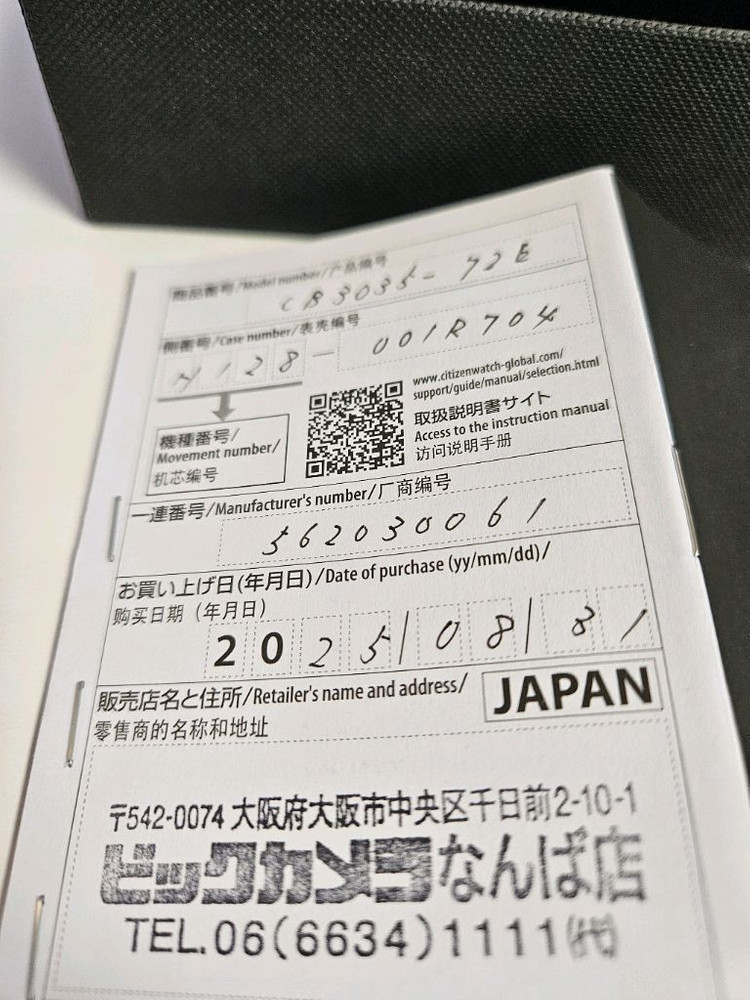 商品番号/Model number/产品编号
CB3035-72E
側番号/Case number/表壳编号
H128-001R704
機種番号/
Movement number/
机芯编号
www.citizenwatch-global.com/
support/guide/manual/selection.html
取扱説明書サイト
Access to the instruction manual
访问说明手册
一連番号/Manufacturer's number/厂商编号
562030061
お買い上げ日(年月日)/Date of purchase (yy/mm/dd)/
购买日期（年月日）
2025/08/31
販売店名と住所/Retailer's name and address/
零售商的名称和地址
JAPAN
〒542-0074 大阪府大阪市中央区千日前2-10-1
ビックカメラなんば店
TEL.06(6634)1111(代)